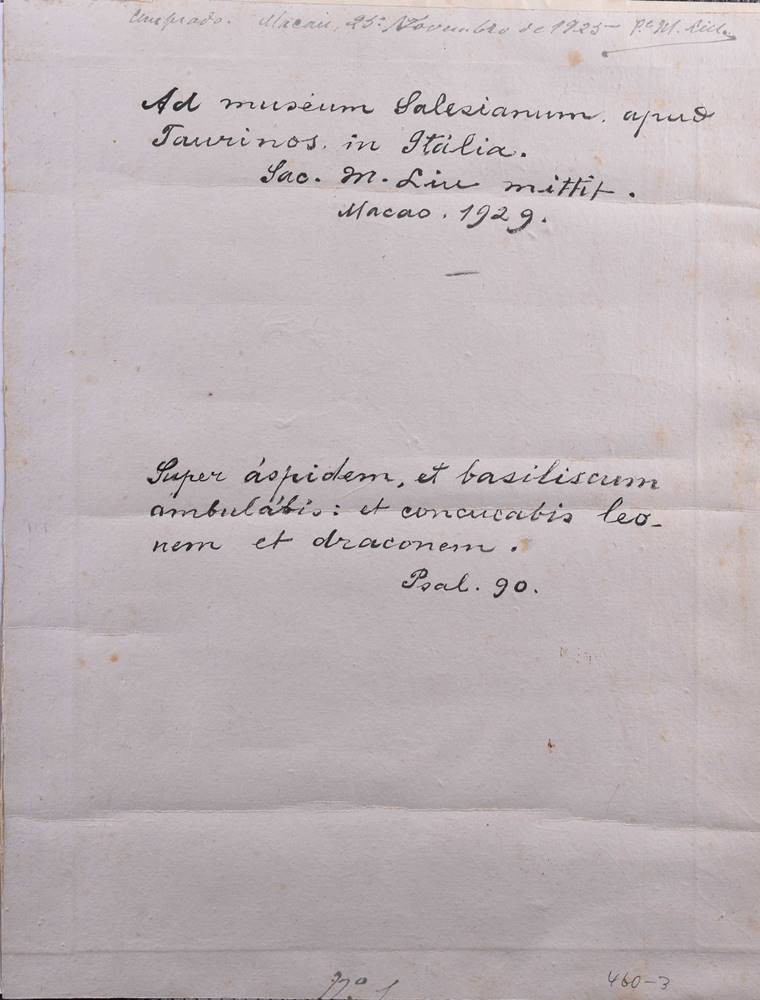 Comprado. Macau, 25 Novembro de 1925 — P.e M. Liu
Ad muséum Salesianum. apud
Taurinos. in Itália.
Sac. M. Liu mittit.
Macao. 1929.
Super áspidem, et basiliscum
ambulábis: et concucabis leo-
nem et draconem.
Psal. 90.
Nº 1
460-3